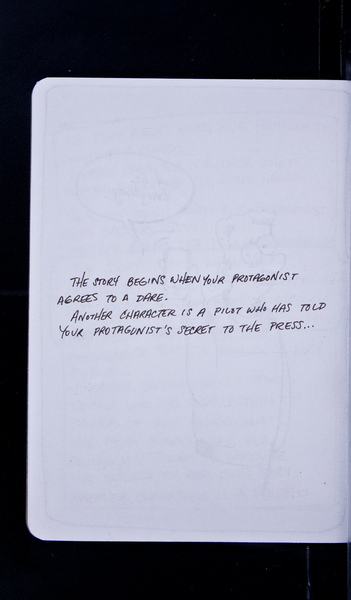 THE STORY BEGINS WHEN YOUR PROTAGONIST
AGREES TO A DARE.
ANOTHER CHARACTER IS A PILOT WHO HAS TOLD
YOUR PROTAGONIST'S SECRET TO THE PRESS...